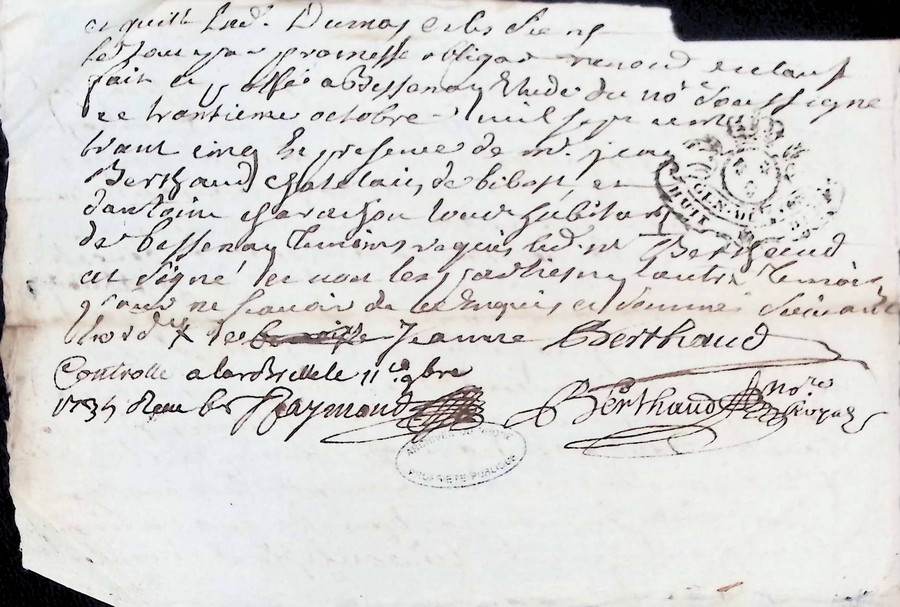 et quitte led. Dumas et les siens
le tout par promesse obligaon renond et clause
fait et passé a Bessenay Etude du no.re soussigné
ce trantieme octobre mil sept cents
trant cinq En presence de mr. jean
Berthaud chatelain de bibost, et
dantoine habitan
de bessenay temoins requis led. mr. Berthaud
et signé et non les parties ny lautre temoin
pour ne scavoir de ce Enquis et sommé suivant
lord.re X de Jeanne Berthaud
Controllé a larbrelle le 11e 9bre
1735 Raymond
Berthaud no.re Royal
GEN. HUIT
PROPRIETE PUBLIQUE